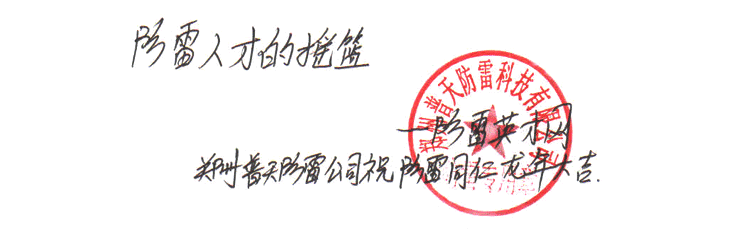 防雷人才的摇篮
郑州普天防雷科技有限公司
一防雷英才网
郑州普天防雷公司祝防雷同仁龙年大吉.